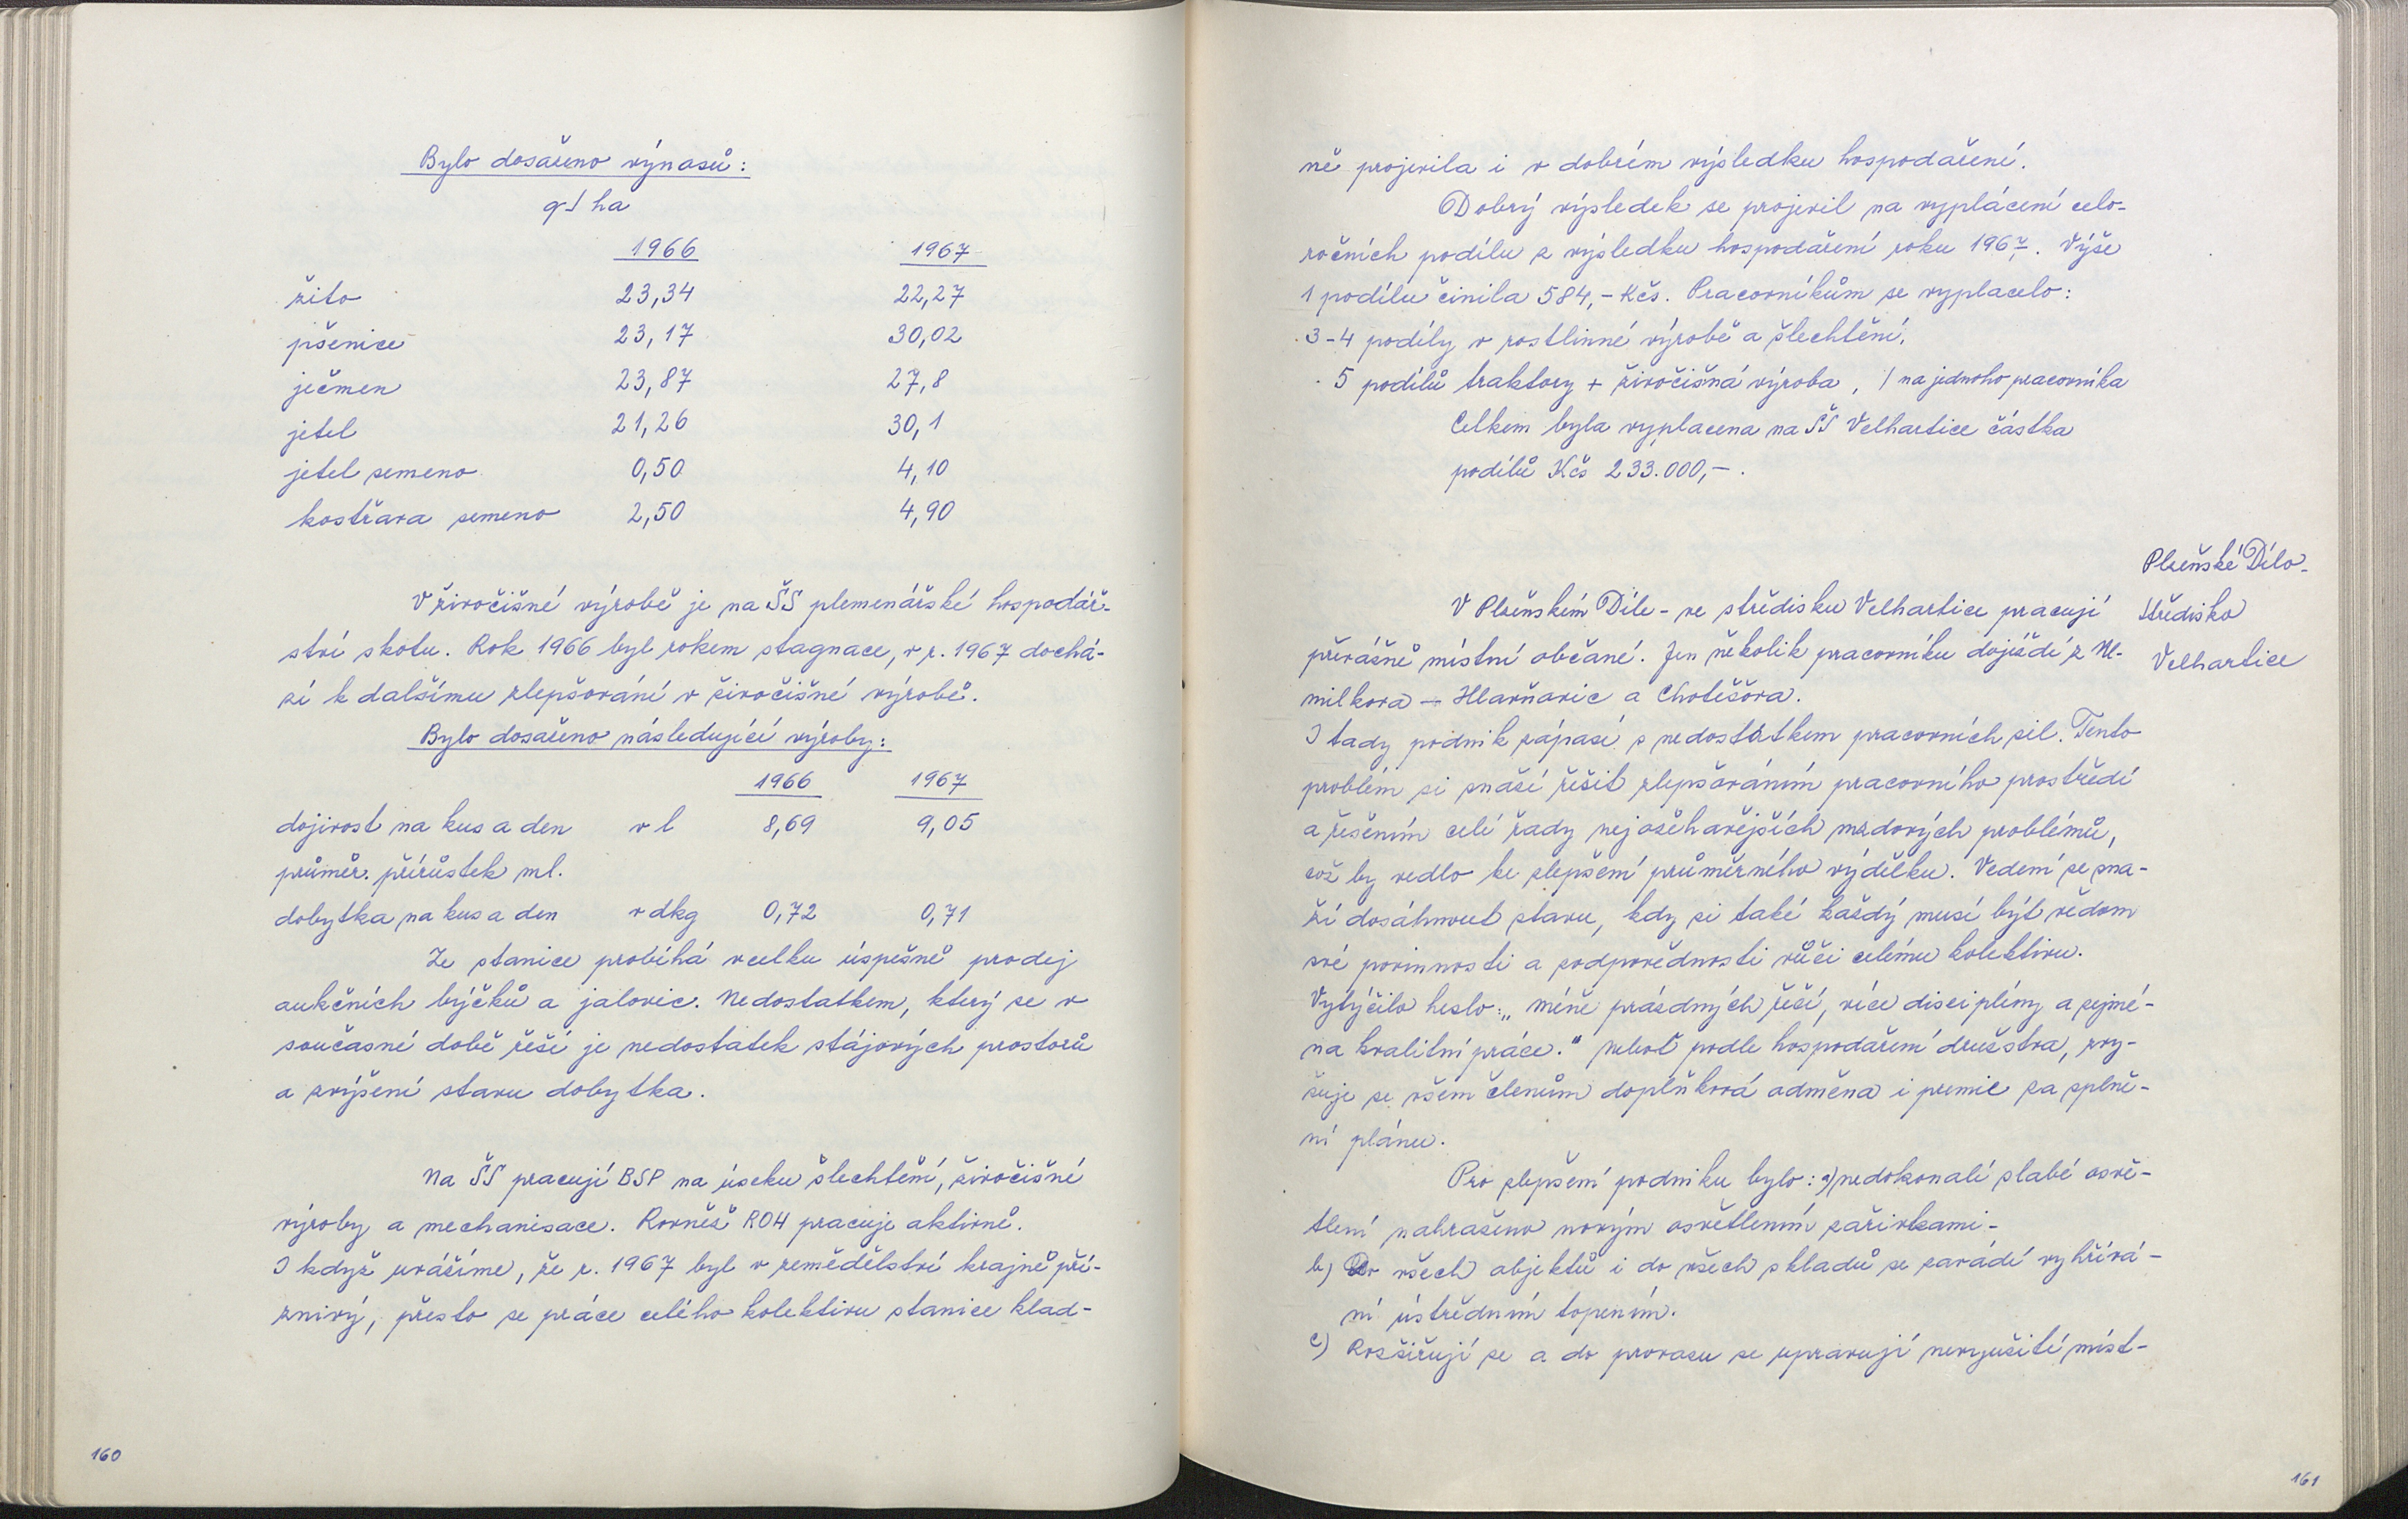 Bylo dosaženo výnosů:
q/ha
1966 1967
žito 23,34 22,27
pšenice 23,17 30,02
ječmen 23,87 27,8
jetel 21,26 30,1
jetel semeno 0,50 4,10
kostřava semeno 2,50 4,90
V živočišné výrobě je na ŠS plemenářské hospodář-
ství skotu. Rok 1966 byl rokem stagnace, v r. 1967 dochá-
zí k dalšímu zlepšování v živočišné výrobě.
Bylo dosaženo následující výroby:
1966 1967
dojivost na kus a den v l 8,69 9,05
průměr. přírůstek ml.
dobytka na kus a den v dkg 0,72 0,71
Ze stanice probíhá vcelku úspěšně prodej
aukčních býčků a jalovic. Nedostatkem, který se v
současné době řeší je nedostatek stájových prostorů
a zvýšení stavu dobytka.
Na ŠS pracují BSP na úseku šlechtění, živočišné
výroby a mechanisace. Rovněž ROH pracuje aktivně.
I když uvážíme, že r. 1967 byl v zemědělství krajně pří-
znivý, přesto se práce celého kolektivu stanice klad-
160
ně projevila i v dobrém výsledku hospodaření.
Dobrý výsledek se projevil na vyplácení celo-
ročních podílu z výsledku hospodaření roku 1967. Výše
1 podílu činila 584,- Kčs. Pracovníkům se vyplacelo:
3-4 podíly v rostlinné výrobě a šlechtění,
5 podílů traktory + živočišná výroba, / na jednoho pracovníka
Celkem byla vyplacena na ŠS Velhartice částka
podílů Kčs 233.000,-.
Plzeňské Dílo-
středisko
Velhartice
V Plzeňském Díle - ve středisku Velhartice pracují
převážně místní občané. Jen několik pracovníku dojíždí z Ne-
milkova - Hlavňovic a Chotěšova.
I tady podnik zápasí s nedostatkem pracovních sil. Tento
problém si snaží řešit zlepšováním pracovního prostředí
a řešením celé řady nejožehavějších mzdových problémů,
což by vedlo ke zlepšení průměrného výdělku. Vedení se sna-
ží dosáhnout stavu, kdy si také každý musí být vědom
své povinnosti a zodpovědnosti vůči celému kolektivu.
Vytýčilo heslo: „méně prázdných řečí, více disciplíny a zejmé-
na kvalitní práce." Neboť podle hospodaření družstva, zvy-
šuje se všem členům doplňková odměna i premie za splně-
ní plánu.
Pro zlepšení podniku bylo: a) nedokonalé slabé osvě-
tlení nahraženo novým osvětlením zařivkami-
b) Do všech objektů i do všech skladů se zavádí vyhřívá-
ní ústředním topením.
c) Rozšiřují se a do provozu se upravují nevyužité míst-
161